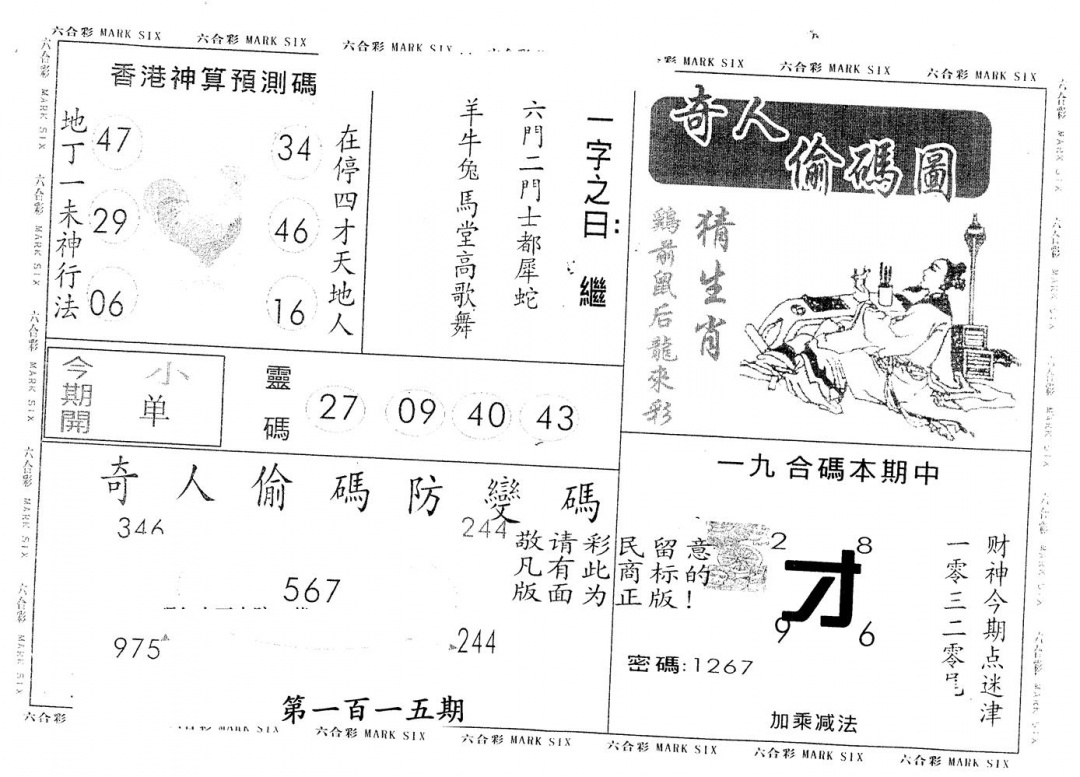 六合彩 MARK SIX 六合彩 MARK SIX 六合彩 MARK SIX 彩 MARK SIX 六合彩 MARK SIX 六合彩 MARK SIX
香港神算預測碼
地丁一未神行法
47 34
29 46
06 16
在停四才天地人
一字之曰: 繼
六門二門士都犀蛇
羊牛兔馬堂高歌舞
奇人偷碼圖
猜生肖
鷄前鼠后龍來彩
今期開
小
单
靈碼
27 09 40 43
奇人偷碼防變碼
346 244
567
975 244
敬请彩民留意
凡有此商标的
版面为正版!
第一百一五期
一九合碼本期中
2 8
才
9 6
密碼:1267
财神今期点迷津
一零三二零
加乘减法
六合彩 MARK SIX 六合彩 MARK SIX 六合彩 MARK SIX 六合彩 MARK SIX 六合彩 MARK SIX